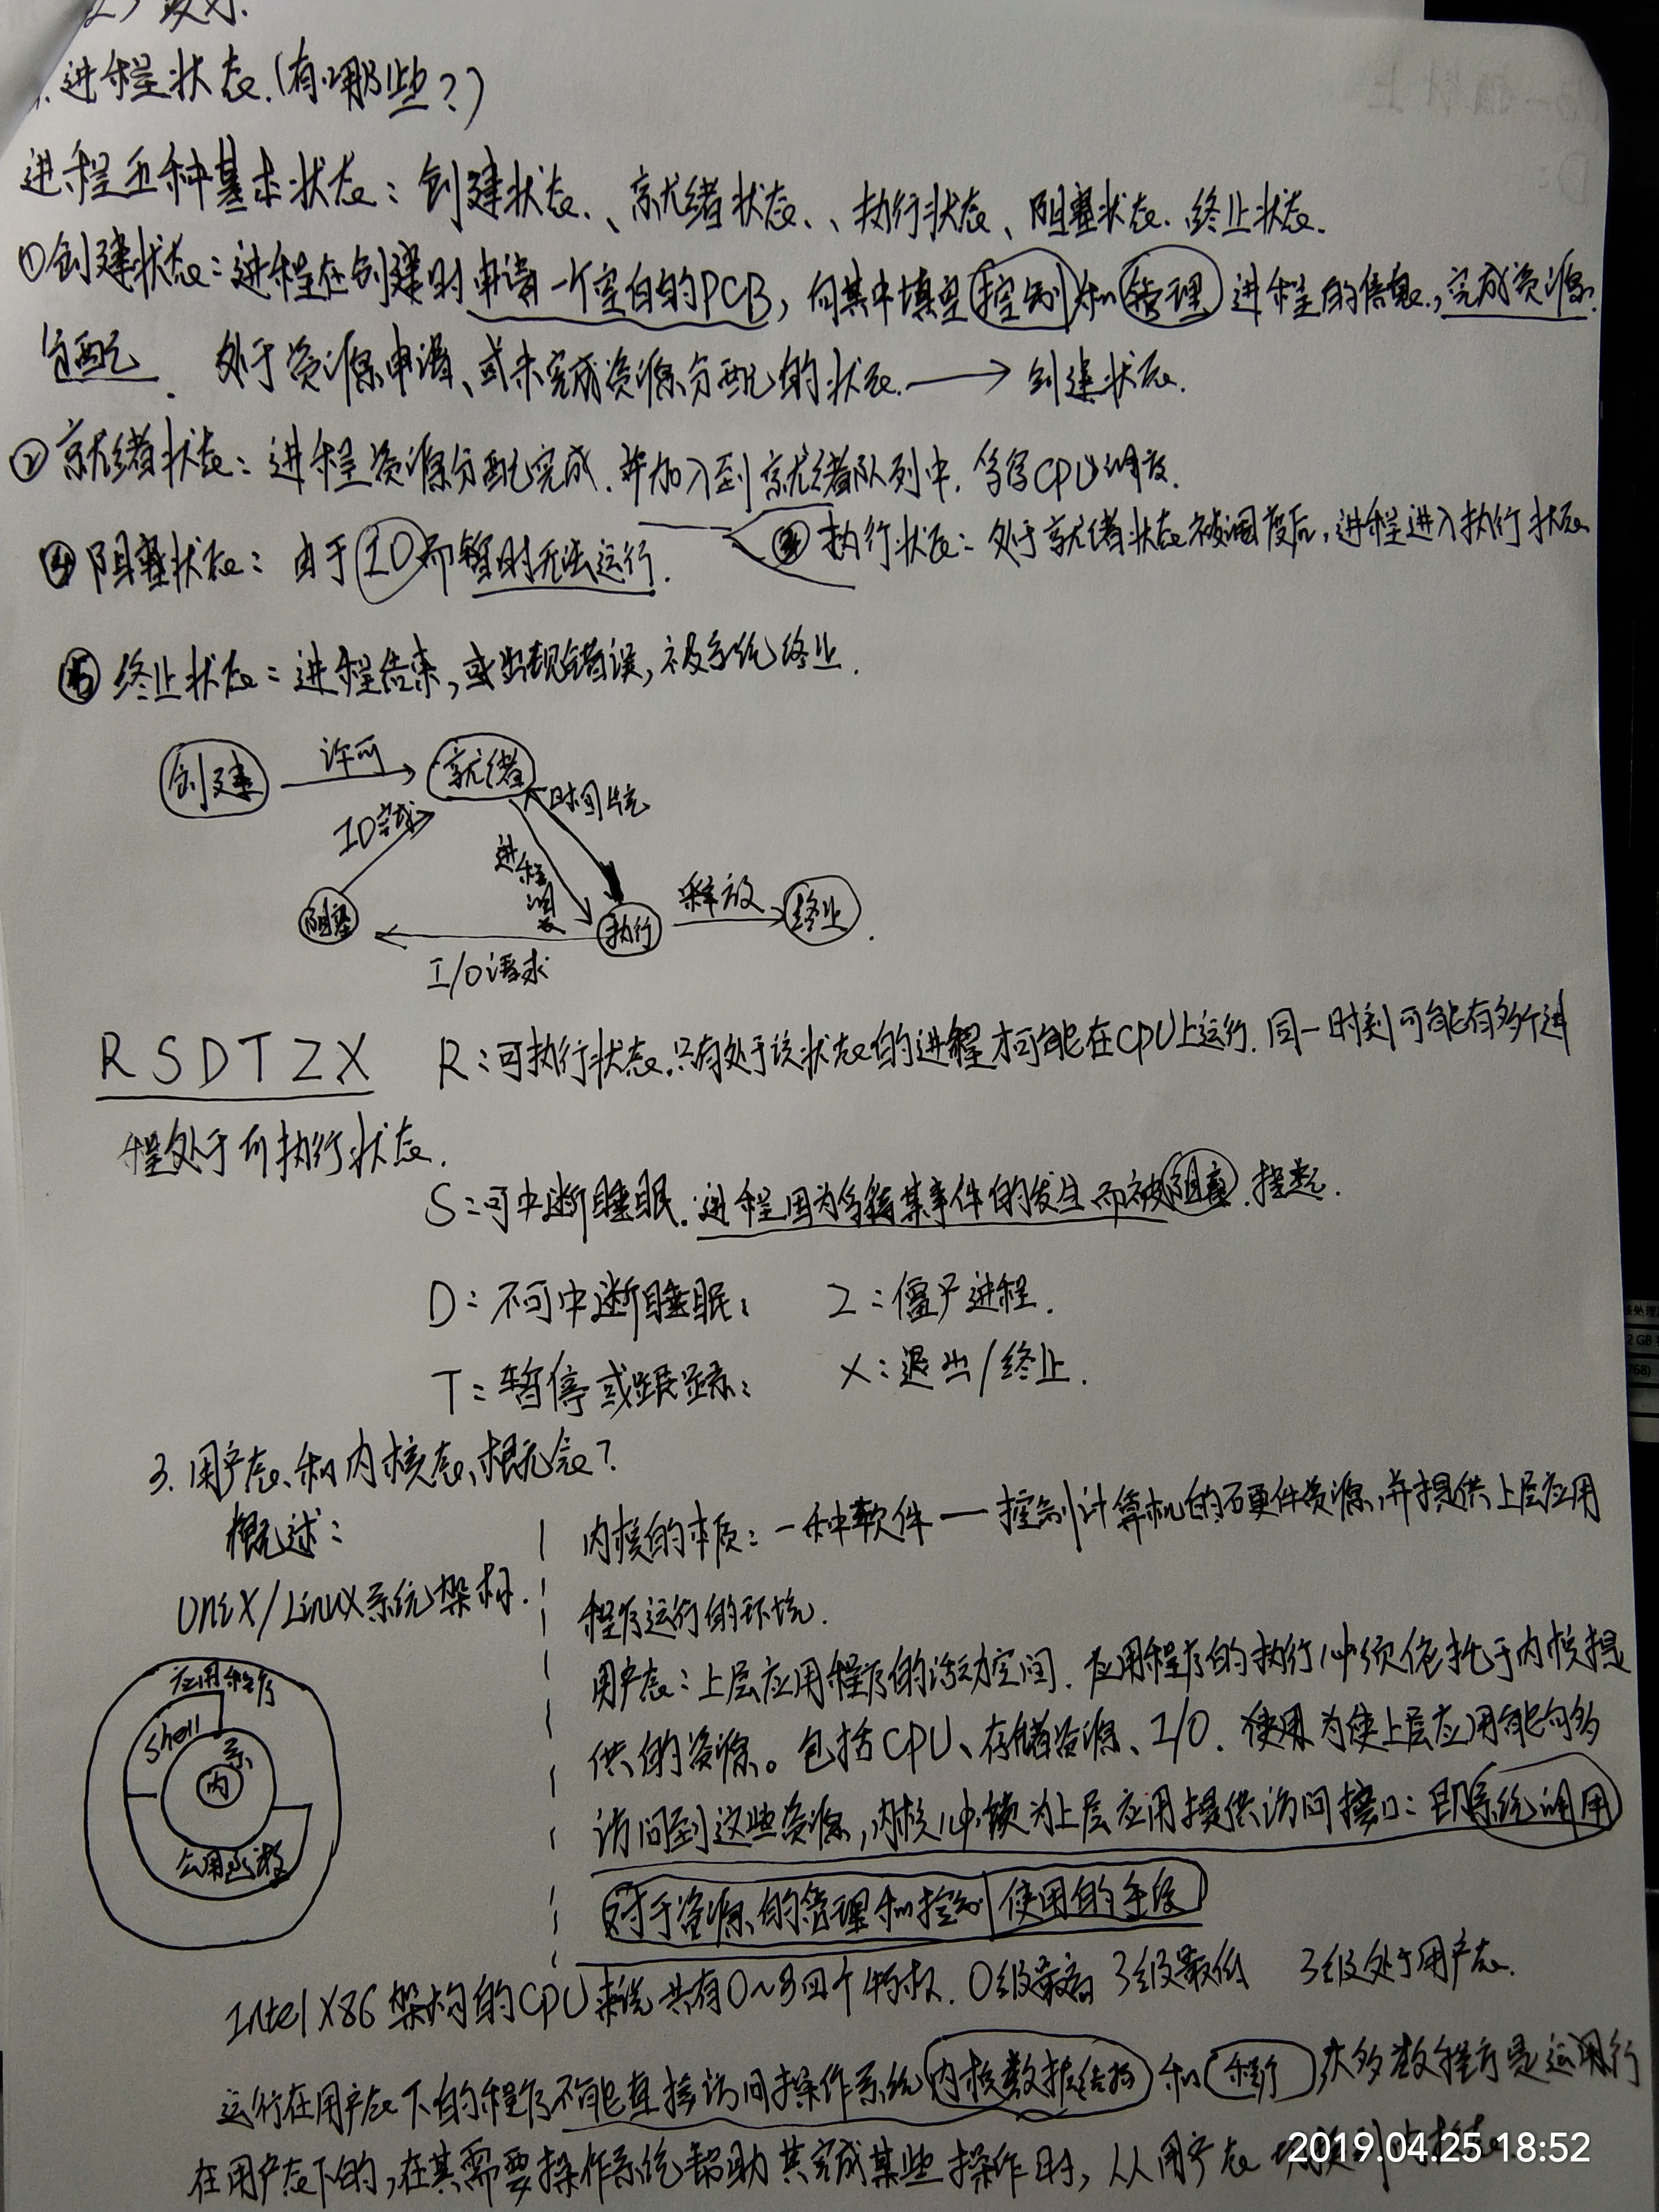 进程状态.(有哪些?)
进程五种基本状态: 创建状态、就绪状态、执行状态、阻塞状态. 终止状态.
①创建状态: 进程在创建时申请一个空白的PCB, 向其中填写控制和管理进程的信息, 完成资源
分配. 处于资源申请、或未完成资源分配的状态. → 创建状态.
②就绪状态: 进程资源分配完成. 并加入到就绪队列中. 等待CPU调度.
③执行状态: 处于就绪状态被调度后, 进程进入执行状态
④阻塞状态: 由于IO而暂时无法运行.
⑤终止状态: 进程结束, 或出现错误, 被系统终止.
创建 许可 就绪
IO完成 时间片完
进程调度
阻塞 执行 释放 终止.
I/O请求
R S D T Z X R:可执行状态.只有处于该状态的进程才可能在CPU上运行. 同一时刻可能有多个进
程处于可执行状态.
S:可中断睡眠. 进程因为等待某事件的发生而被阻塞. 挂起.
D: 不可中断睡眠; Z: 僵尸进程.
T: 暂停或跟踪; X: 退出/终止.
3. 用户态、和内核态、概念?
概述:
Unix/Linux系统架构.
应用程序
shell
系
内
公用函数
内核的本质: 一种软件 — 控制计算机的硬件资源, 并提供上层应用
程序运行的环境.
用户态: 上层应用程序的活动空间. 应用程序的执行必须依托于内核提
供的资源。包括CPU、存储资源、I/O. 使用为使上层应用能够
访问到这些资源, 内核必须为上层应用提供访问接口: 即系统调用
对于资源的管理和控制 使用的手段
Intel X86架构的CPU来说 共有0~3四个特权. 0级最高 3级最低 3级处于用户态.
运行在用户态下的程序不能直接访问操作系统内核数据结构和程序 大多数程序是运行
在用户态下的, 在其需要操作系统帮助其完成某些操作时, 从用户态
2019.04.25 18:52